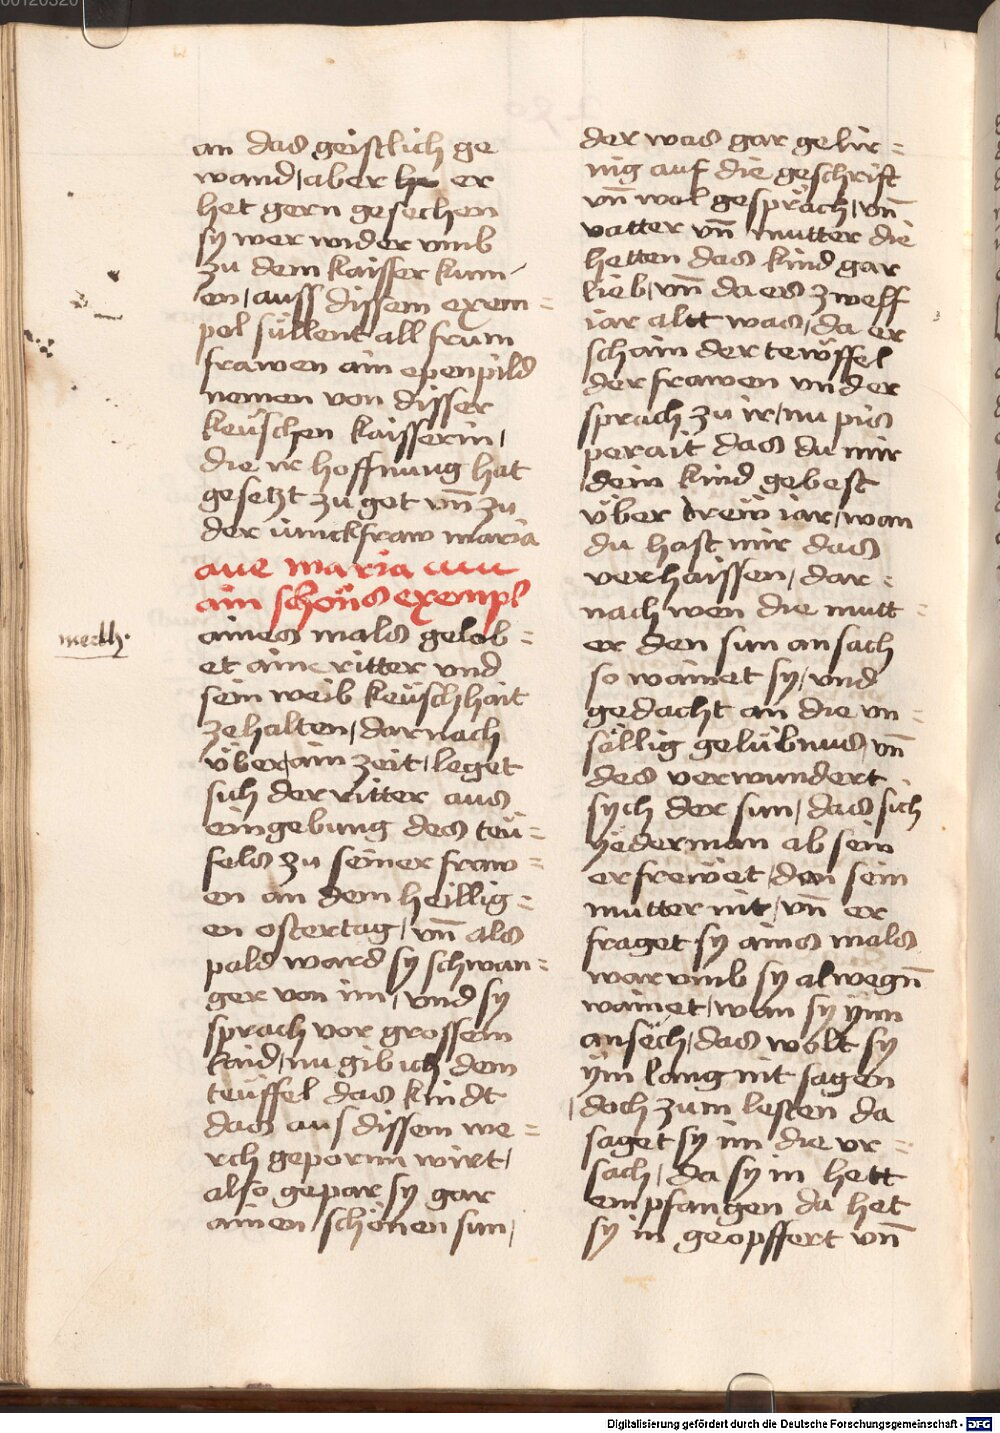 an das geistlich ge
wand / aber er
het gern gesechen
sy wer wider vmb
zu dem kaisser kum
en / auss dissem exem =
pel süllent all frum
frawen ain epenpild
nemen von disser
keüschen kaisserin /
die ir hoffnung hat
gesetzt zu got vn̄ zu
der iunckfraw maria
aue maria
ain schöns exempl
merckh.
aines mals gelob =
et aine ritter vnd
sein weib keüschhait
ze halten / darnach
über / ain zeit / leget
sich der ritter aus
eingebung des teü =
fels zu seiner fraw =
en an dem heillig =
en ostertag / vn̄ als
pald ward sy schwan =
ger von im / vnd sy
sprach vor grossem
laid / nu gib ich dem
teüffel das kindt
das aus dissem we =
rch gepornn wirt /
also gepar sy gar
ainen schönen sun /
der was gar gelir =
nig auf die geschrift
vn̄ wol gespräch / vn̄
vatter vn̄ mutter die
hetten das kind gar
lieb / vn̄ da es zweff
iar altt was / da er
schain der tewffel
der frawen vnd er
sprach zu ir / nu pis
perait das du mir
dein kind gebest
über dreü iar / wan
du hast mir das
verhaissen / dar =
nach wen die mutt =
er den sun an sach
so wainet sy / vnd
gedacht an die vn =
sällig gelübnus / vn̄
des verwundert
sych der sun / das sich
yederman ab sein
erfreẅet / den sein
mutter nit / vn̄ er
fraget sy ains mals
war vmb sy alwegn̄
wainet / wan sy ÿnn
ansech / das wolt sy
ÿm lang nit sagen
/ doch zum lesten da
saget sy im die vr =
sach / da sy in hett
empfangen da het
sy in geopffert vn̄
Digitalisierung gefördert durch die Deutsche Forschungsgemeinschaft - DFG